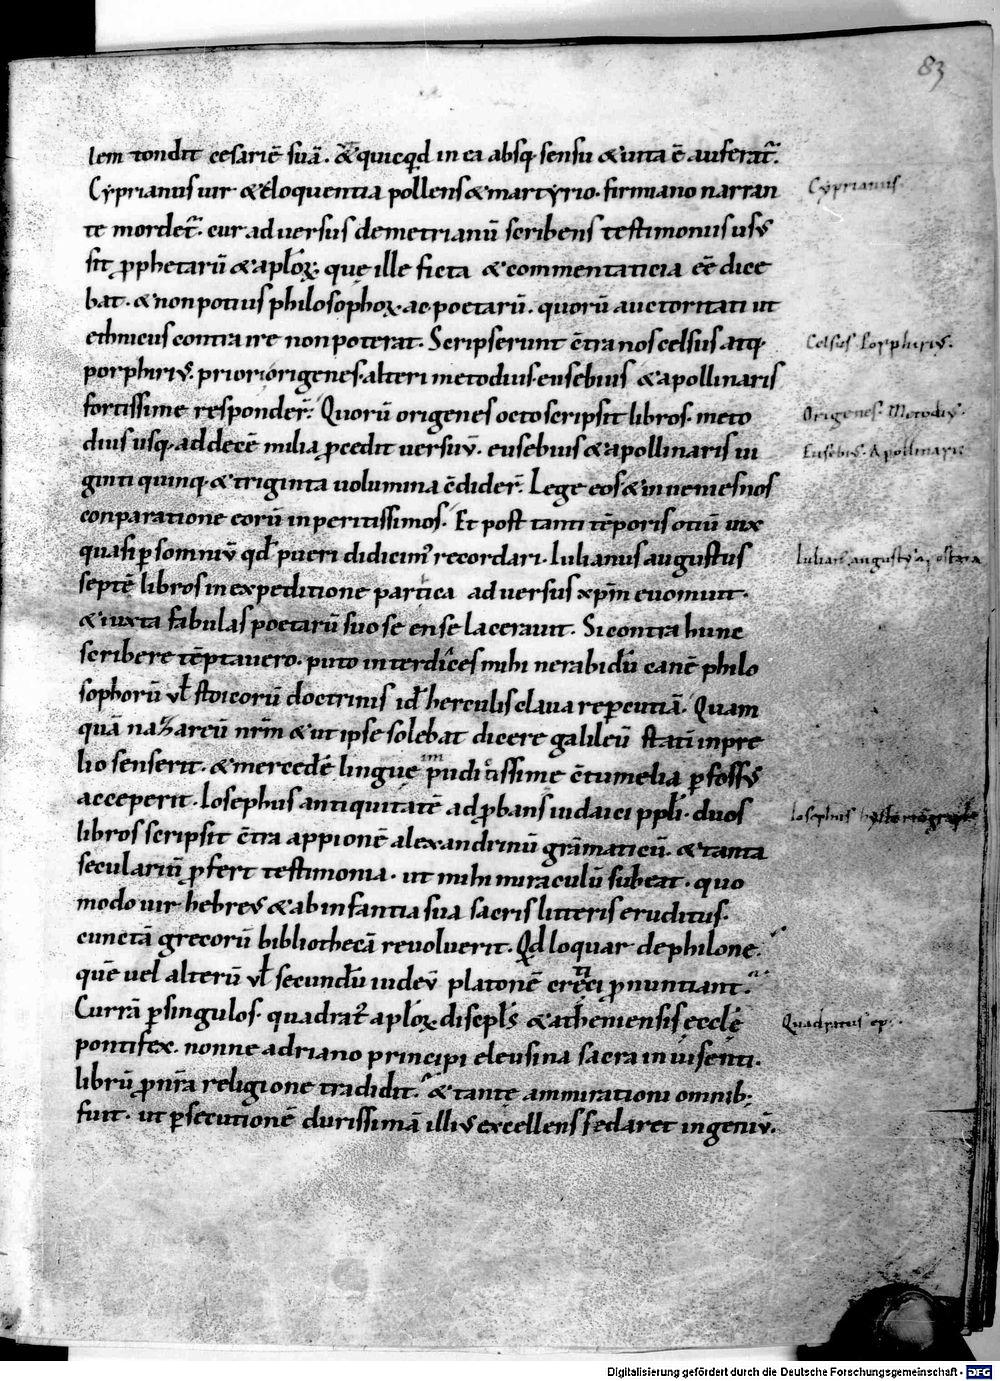 83
lem tondit cesariē suā. &quicq̇d in ea absq; sensu &uita ē auferat᷑.
Cẏprianus uir &eloquentia pollens&martẏrio. firmiano narran
te mordet᷑. cur aduersus demetrianū scribens testimoniis usꝰ
sit ꝓphetarū &aplōꝝ. quę ille ficta &commentaticia eē̄ dice
bat. &nonpotius philosophoꝝ. ac poetarū. quorū auctoritati ut
ethnicus contra ire nonpoterat. Scripserunt c̄tra nos celsus atq;
porphirıꝰ. priori origenes. alteri metodius. eusebius &apollinaris
fortissime responder̄. Quorū origenes octo scripsit libros. meto
dius usq; addecē milia ꝓcedit uersuū. eusebius &apollinaris ui
ginti quinq; &triginta uolumina c̄dider̄. Lege eos &inuenies nos
conparatione eorū inperitissimos. Et post tanti tēporis otiū uix
quasi ꝑ somniū qđ pueri didicimꝰ recordari. Iulianus augustus
septē libros inexpeditione partica aduersus xp̄m euomuit.
&iuxta fabulas poetarū suo se ense lacerauit. Si contra hunc
scribere tēptauero. puto interdices mihi ne rabidū canē philo
sophorū ł stoicorū doctrinis iđ herculis claua repercutiā. Quam
quā nazareū nr̄m &ut ipse solebat dicere galileū statī inpre
lio senserit. &mercedē linguę inpudi c̄tissime c̄tumelia ꝑfossꝰ
acceperit. Iosephus antiquitatē adꝓbans iudaici ppłi. duos
libros scripsit c̄tra appionē alexandrinū grāmaticū. &tanta
seculariū ꝓfert testimonia. ut mihi miraculū subeat. quo
modo uir hebreꝰ &ab infantia sua sacris litteris eruditus.
cunctā grecorū bibliothecā reuoluerit. Qđ loquar de philone.
quē uel alterū ł secundū iudeū platonē critici ꝓnuntiant.
Currā ꝑ singulos. quadratꝰ aplōꝝ discipłs &atheniensis ecclę
pontifex. nonne adriano principi eleusina sacra inuisenti.
librū ꝓ nr̄a religione tradidit. &tantę ammirationi omnib;
fuit. ut ꝑsecutionē durissimā illiꝰ excellens sedaret ingeniū.
Cẏprianus.
Celsus. Porphiriꝰ.
Origenes. Metodiꝰ.
Eusebiꝰ. Apollinaris
Iulianꝰ augustꝰ apostata
Iosephus hystoriographꝰ
Quadratus ep̄s.
Digitalisierung gefördert durch die Deutsche Forschungsgemeinschaft - DFG